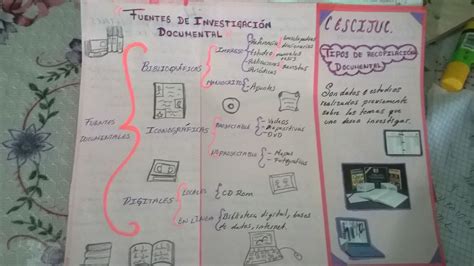 "FUENTES DE INVESTIGACIÓN
DOCUMENTAL"
FUENTES
DOCUMENTALES
BIBLIOGRÁFICAS
IMPRESO
Referencia
Enciclopedias
Diccionarios
Publicaciones
Periódicas
Revistas
MANUSCRITO
-Apuntes
ICONOGRÁFICAS
PROYECTABLE
-Videos
-Diapositivas
-DVD
NO PROYECTABLE
-Mapas
-Fotografías
DIGITALES
LOCALES
CD Rom
EN LINEA
Biblioteca digital, bases
de datos, internet.
CESCIJUC.
TIPOS DE RECOPILACIÓN
DOCUMENTAL
Son datos o estudios
realizados previamente
sobre los temas que
uno desea investigar.